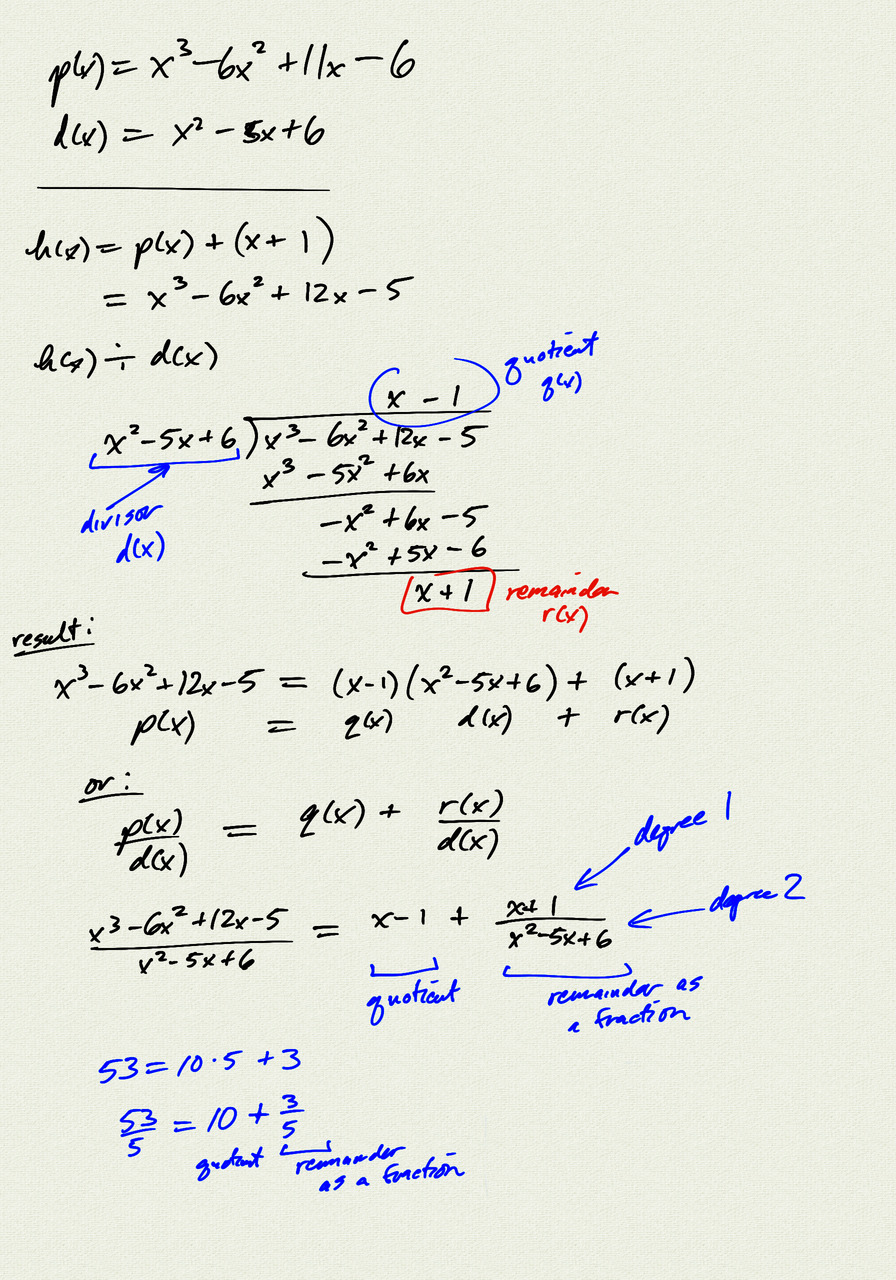 p(x) = x³ - 6x² + 11x - 6
d(x) = x² - 5x + 6
h(x) = p(x) + (x + 1)
= x³ - 6x² + 12x - 5
h(x) ÷ d(x)
quotient
q(x)
x - 1
x² - 5x + 6 ) x³ - 6x² + 12x - 5
x³ - 5x² + 6x
divisor
d(x)
-x² + 6x - 5
-x² + 5x - 6
x + 1
remainder
r(x)
result:
x³ - 6x² + 12x - 5 = (x-1)(x² - 5x + 6) + (x+1)
p(x) = q(x) d(x) + r(x)
or:
p(x)/d(x) = q(x) + r(x)/d(x)
degree 1
x³ - 6x² + 12x - 5 / x² - 5x + 6 = x - 1 + x+1 / x² - 5x + 6
degree 2
quotient
remainder as
a fraction
53 = 10 · 5 + 3
53/5 = 10 + 3/5
quotient
remainder
as a fraction